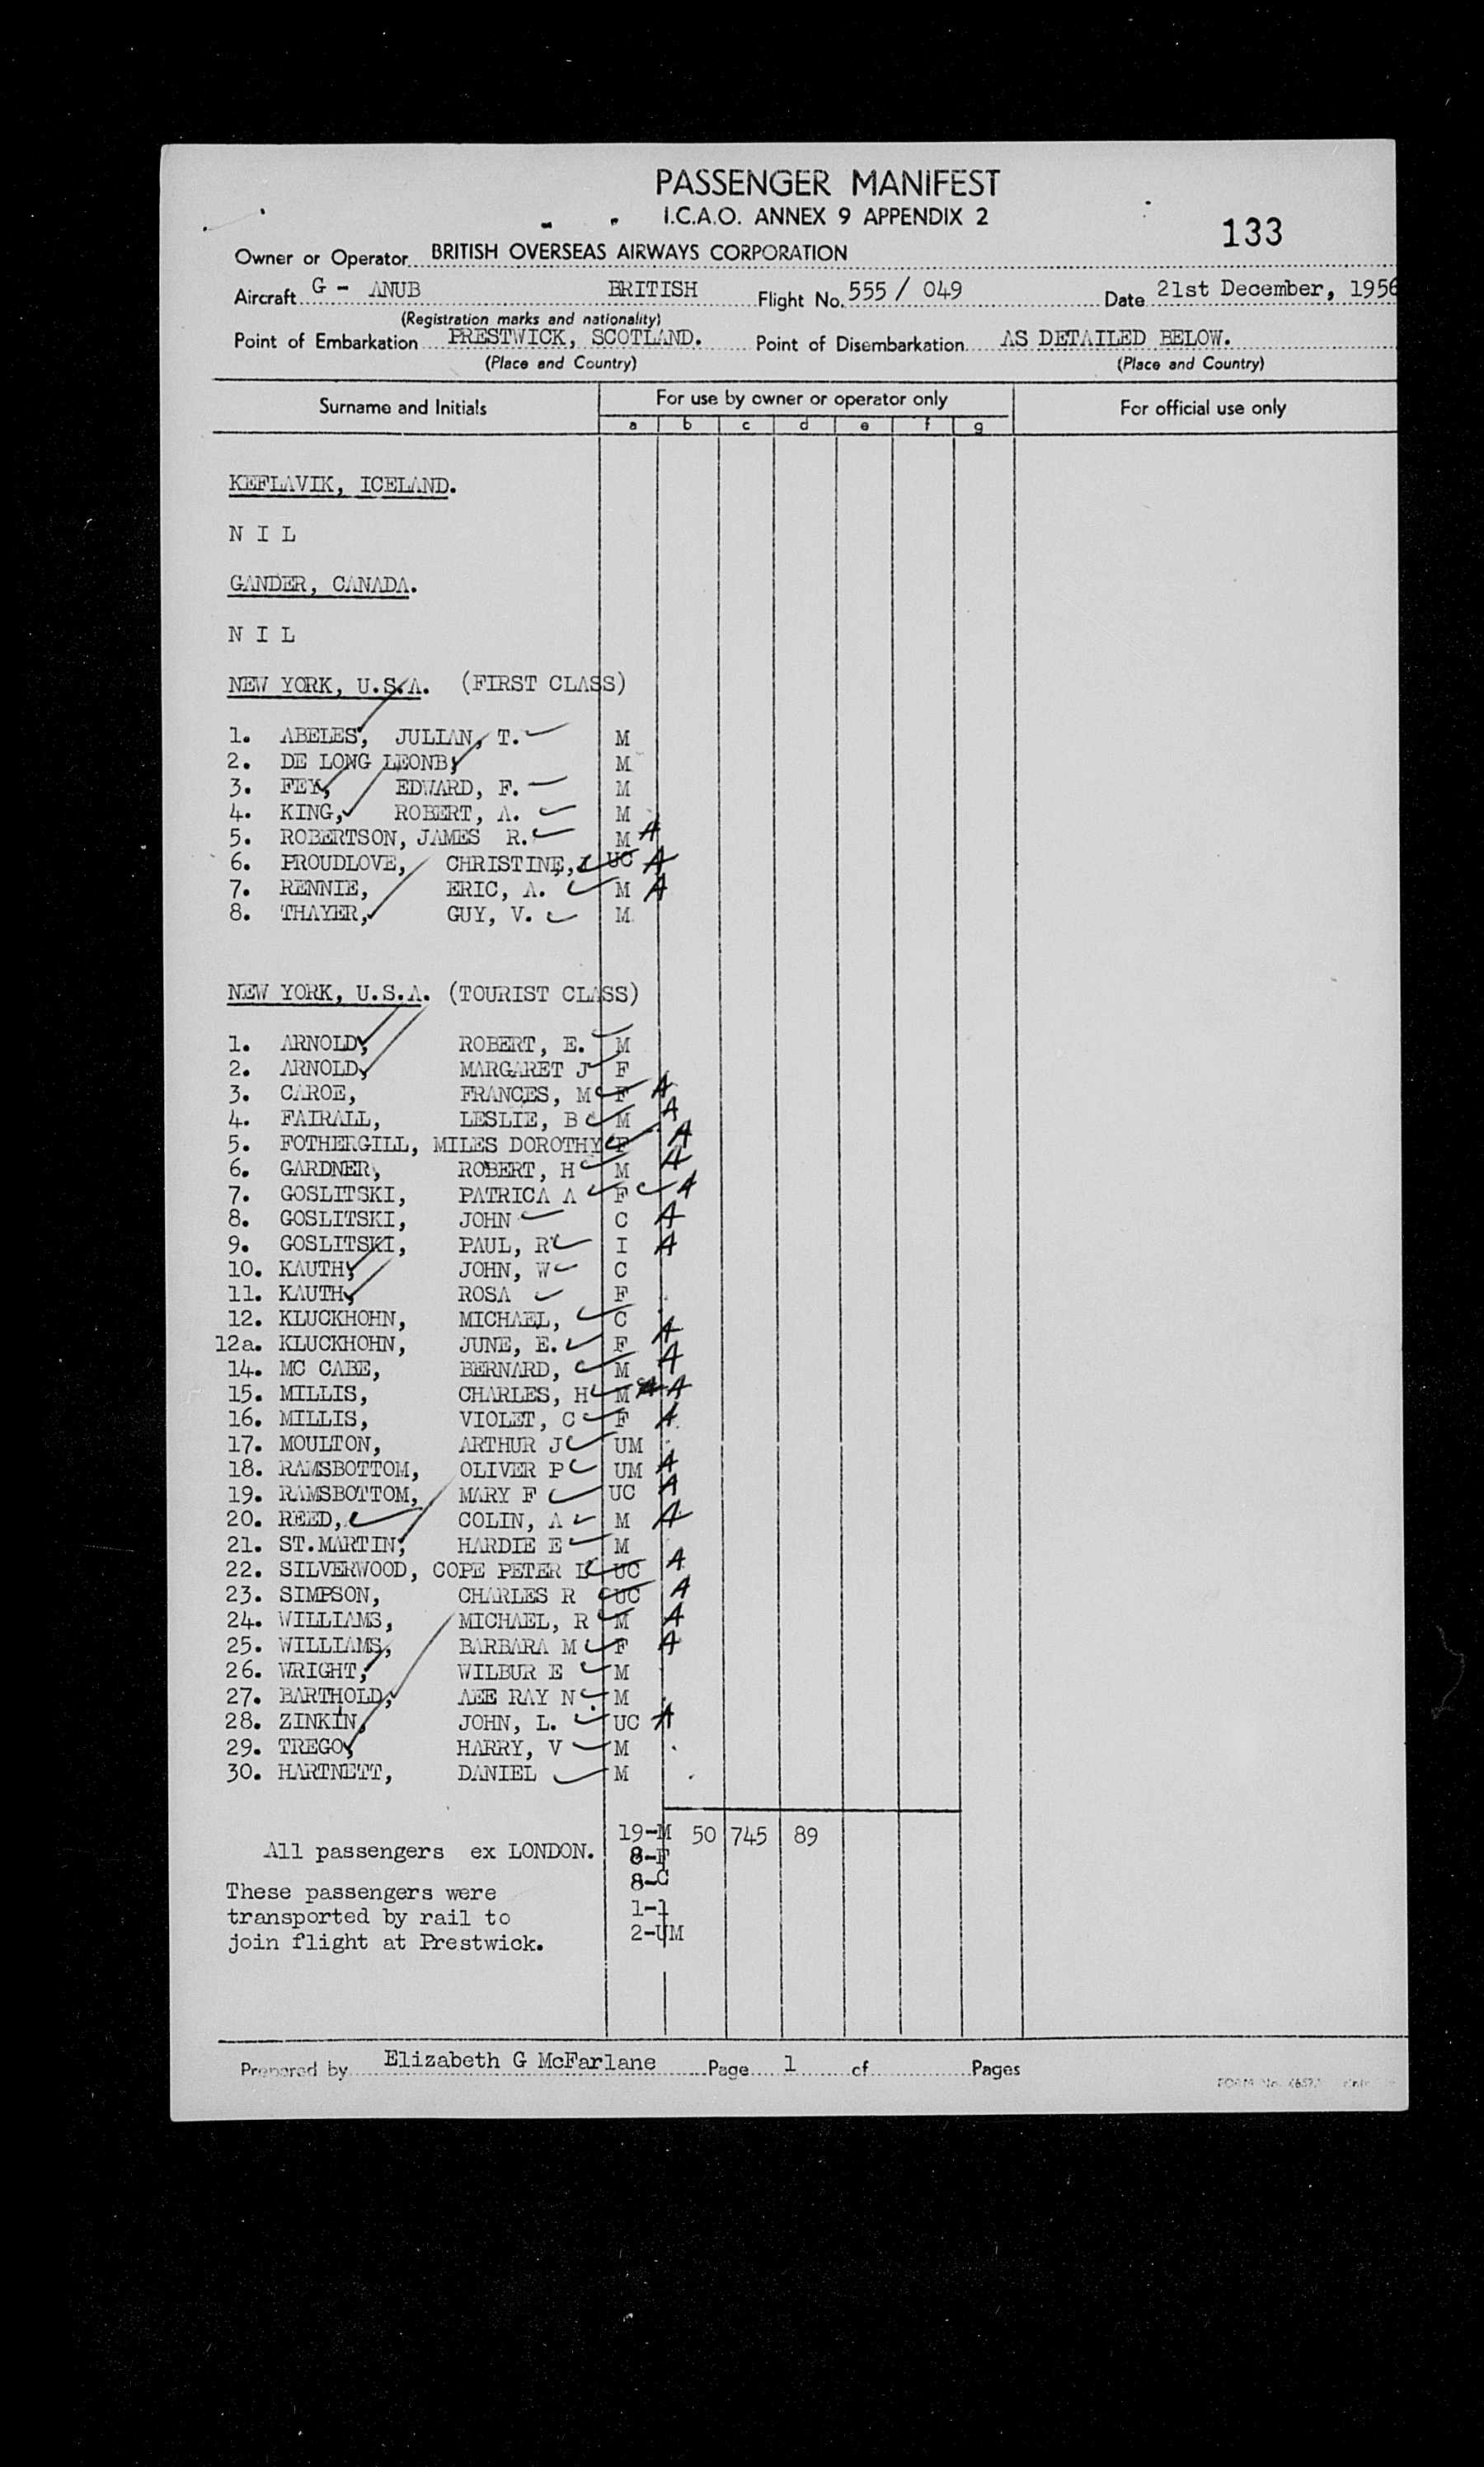 PASSENGER MANIFEST
I.C.A.O. ANNEX 9 APPENDIX 2
133
Owner or Operator BRITISH OVERSEAS AIRWAYS CORPORATION
Aircraft G - ANUB BRITISH Flight No. 555 / 049 Date 21st December, 1956
(Registration marks and nationality)
Point of Embarkation PRESTWICK, SCOTLAND. Point of Disembarkation AS DETAILED BELOW.
(Place and Country) (Place and Country)
Surname and Initials For use by owner or operator only For official use only
a b c d e f g
KEFLAVIK, ICELAND.
N I L
GANDER, CANADA.
N I L
NEW YORK, U.S.A. (FIRST CLASS)
1. ABELES, JULIAN, T. M
2. DE LONG LEONB, M
3. FEY, EDWARD, F. M
4. KING, ROBERT, A. M
5. ROBERTSON, JAMES R. M A
6. PROUDLOVE, CHRISTINE, UC A
7. RENNIE, ERIC, A. M A
8. THAYER, GUY, V. M
NEW YORK, U.S.A. (TOURIST CLASS)
1. ARNOLD, ROBERT, E. M
2. ARNOLD, MARGARET J F
3. CAROE, FRANCES, M F A
4. FAIRALL, LESLIE, B M A
5. FOTHERGILL, MILES DOROTHY F A
6. GARDNER, ROBERT, H M A
7. GOSLITSKI, PATRICA A F A
8. GOSLITSKI, JOHN C A
9. GOSLITSKI, PAUL, R I A
10. KAUTH, JOHN, W C
11. KAUTH, ROSA F
12. KLUCKHOHN, MICHAEL, C
12a. KLUCKHOHN, JUNE, E. F A
14. MC CABE, BERNARD, M A
15. MILLIS, CHARLES, H M A A
16. MILLIS, VIOLET, C F A
17. MOULTON, ARTHUR J UM
18. RAMSBOTTOM, OLIVER P UM A
19. RAMSBOTTOM, MARY F UC A
20. REED, COLIN, A M A
21. ST.MARTIN, HARDIE E M
22. SILVERWOOD, COPE PETER L UC A
23. SIMPSON, CHARLES R UC A
24. WILLIAMS, MICHAEL, R M A
25. WILLIAMS, BARBARA M F A
26. WRIGHT, WILBUR E M
27. BARTHOLD, RAY N M
28. ZINKIN, JOHN, L. UC A
29. TREGO, HARRY, V M
30. HARTNETT, DANIEL M
19-M 50 745 89
All passengers ex LONDON. 8-F
8-C
These passengers were
transported by rail to 1-I
join flight at Prestwick. 2-UM
Prepared by Elizabeth G McFarlane Page 1 of Pages
FORM No.